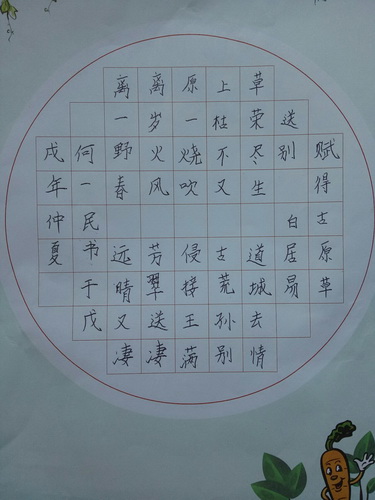 赋得古原草
送别
白居易
离离原上草
一岁一枯荣
野火烧不尽
春风吹又生
远芳侵古道
晴翠接荒城
又送王孙去
凄凄满别情
何一民书于戊
戊年仲夏